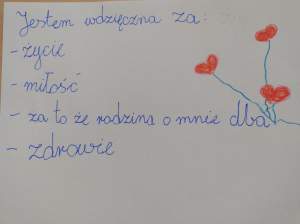 Jestem wdzięczna za:
- życie
- miłość
- za to że rodzina o mnie dba
- zdrowie